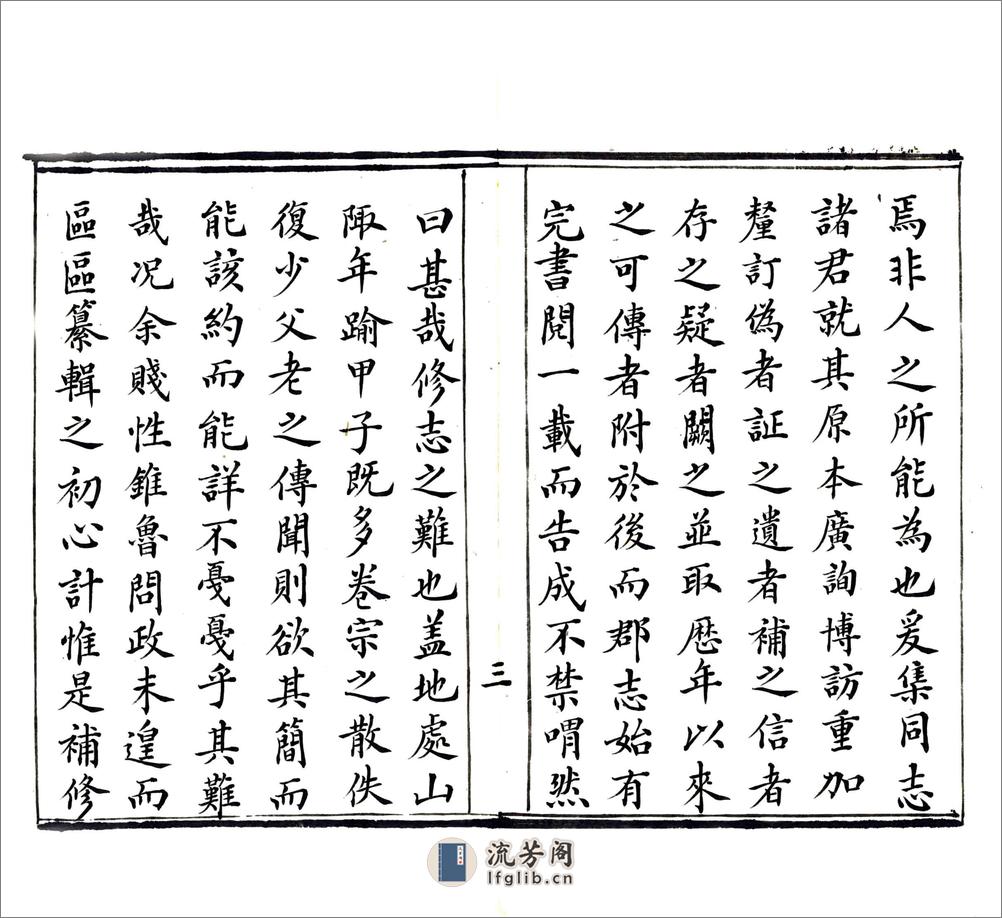 焉非人之所能為也爰集同志
諸君就其原本廣詢博訪重加
釐訂偽者証之遺者補之信者
存之疑者闕之並取歷年以來
之可傳者附於後而郡志始有
完書閱一載而告成不禁喟然
三
曰甚哉修志之難也盖地處山
陬年踰甲子既多卷宗之散佚
復少父老之傳聞則欲其簡而
能該約而能詳不戞戞乎其難
哉况余賤性錐魯問政未遑而
區區纂輯之初心計惟是補修
流芳阁
lfglib.cn